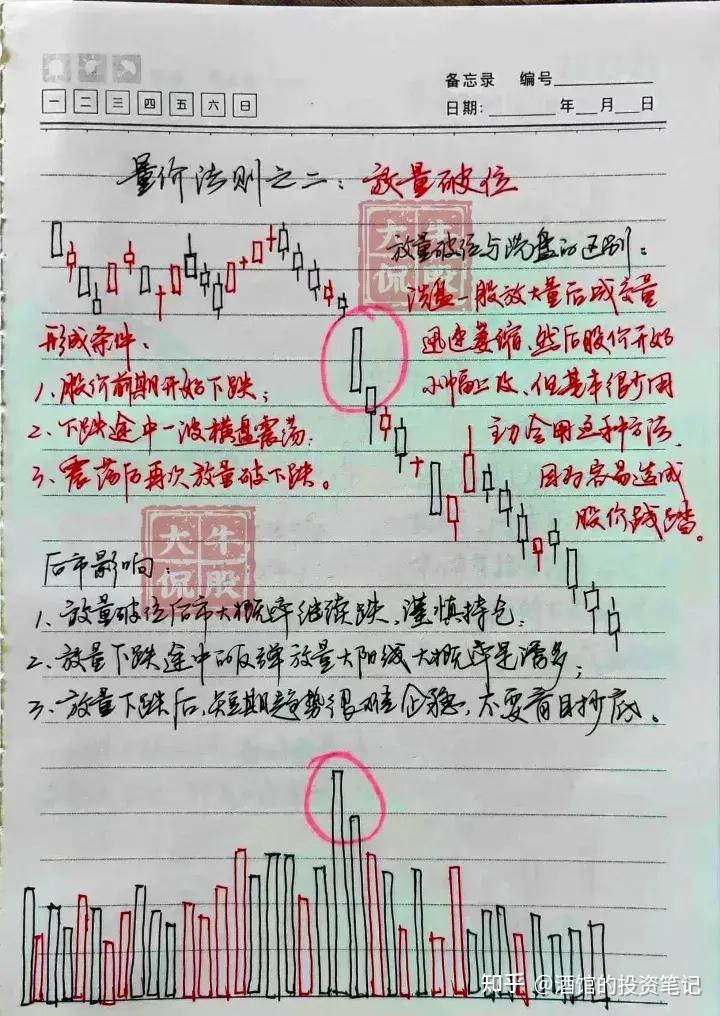 备忘录 编号
一 二 三 四 五 六 日
日期: 年 月 日
量价法则之二：放量破位
大牛
侃股
放量破位与洗盘的区别：
洗盘一般放大量后成交量
迅速萎缩，然后股价开始
小幅上攻，但基本很少用
主力会用这种方法，
因为容易造成
股价践踏。
形成条件：
1、股价前期开始下跌；
2、下跌途中一波横盘震荡；
3、震荡后再次放量破下跌。
大牛
侃股
后市影响：
1、放量破位后市大概率继续跌，谨慎持仓；
2、放量下跌途中的反弹放量大阳线大概率是诱多；
3、放量下跌后，短期趋势很难企稳，不要盲目抄底。
知乎 @酒馆的投资笔记